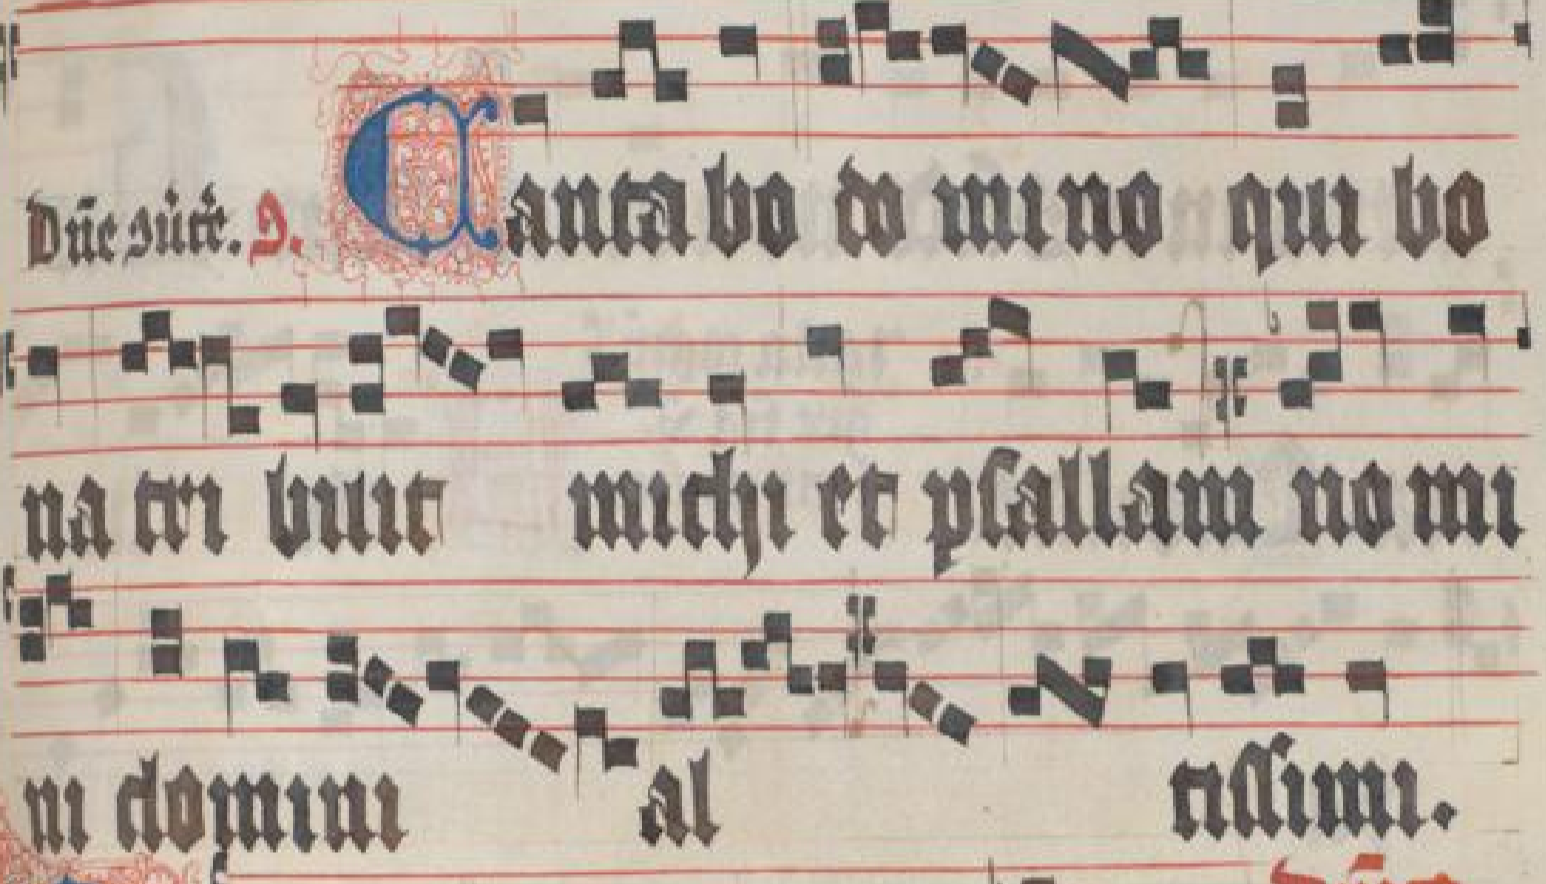 Dn̄e sūc̄t. Ꝯ. Canta bo do mi no qui bo
na tri buit michi et psallam no mi
ni domini al tissimi.